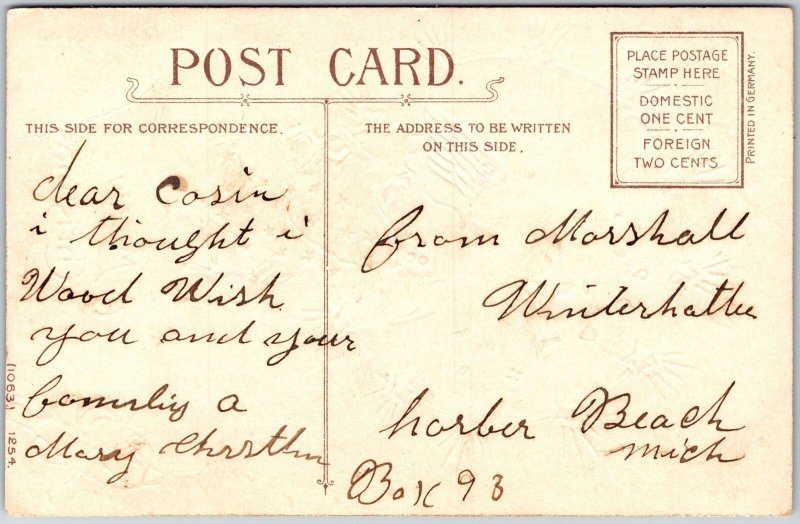 POST CARD.
THIS SIDE FOR CORRESPONDENCE.
THE ADDRESS TO BE WRITTEN
ON THIS SIDE.
PLACE POSTAGE
STAMP HERE
DOMESTIC
ONE CENT
FOREIGN
TWO CENTS
PRINTED IN GERMANY.
dear Cosin
i thought i
Wood Wish
you and your
famliy a
Mary
from Marshall
harber Beach
Mich
Box 93
(1063.) 1254.